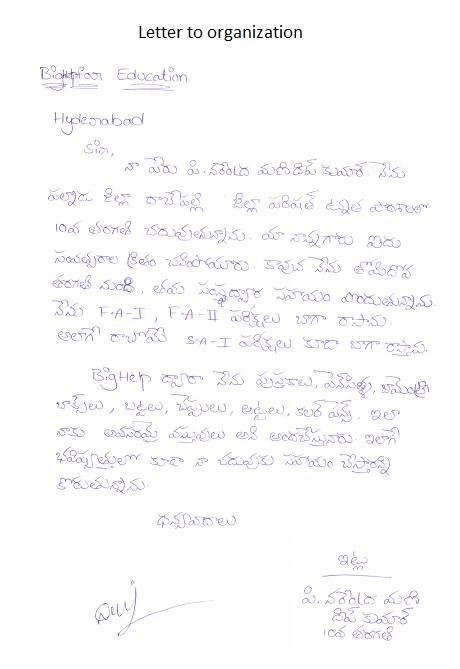 Letter to organization
Bighelp for Education
Hyderabad
సార్,
నా పేరు పి. నరేంద్ర మణిదీప్ కుమార్. నేను
పల్నాడు జిల్లా దాచేపల్లి జిల్లా పరిషత్ ఉన్నత పాఠశాలలో
10వ తరగతి చదువుతున్నాను. మా నాన్నగారు ఐదు
సంవత్సరాల క్రితం చనిపోయారు. కావున నేను తొమ్మిదొవ
తరగతి నుండి, తమ సంస్థద్వార సహాయం పొందుతున్నాను.
నేను F.A-I, F.A-II పరీక్షలు బాగా రాసాను.
అలాగే రాబోయే S.A-I పరీక్షలు కూడా బాగా రాస్తాను.
BigHelp ద్వారా నేను పుస్తకాలు, పెన్సిళ్ళు, జామెంట్రి
బాక్సులు, బట్టలు, చెప్పులు, అట్టలు, కలర్ పెన్స్, ఇలా
నాకు అవసరమై వస్తువులు అని అందచేస్తున్నారు. ఇలాగే
భవిష్యత్తులో కూడా నా చదువుకు సహాయం చేస్తారని
కోరుతున్నాను.
ధన్యవాదాలు
ఇట్లు
పి. నరేంద్ర మణి
దీప్ కుమార్
10వ తరగతి